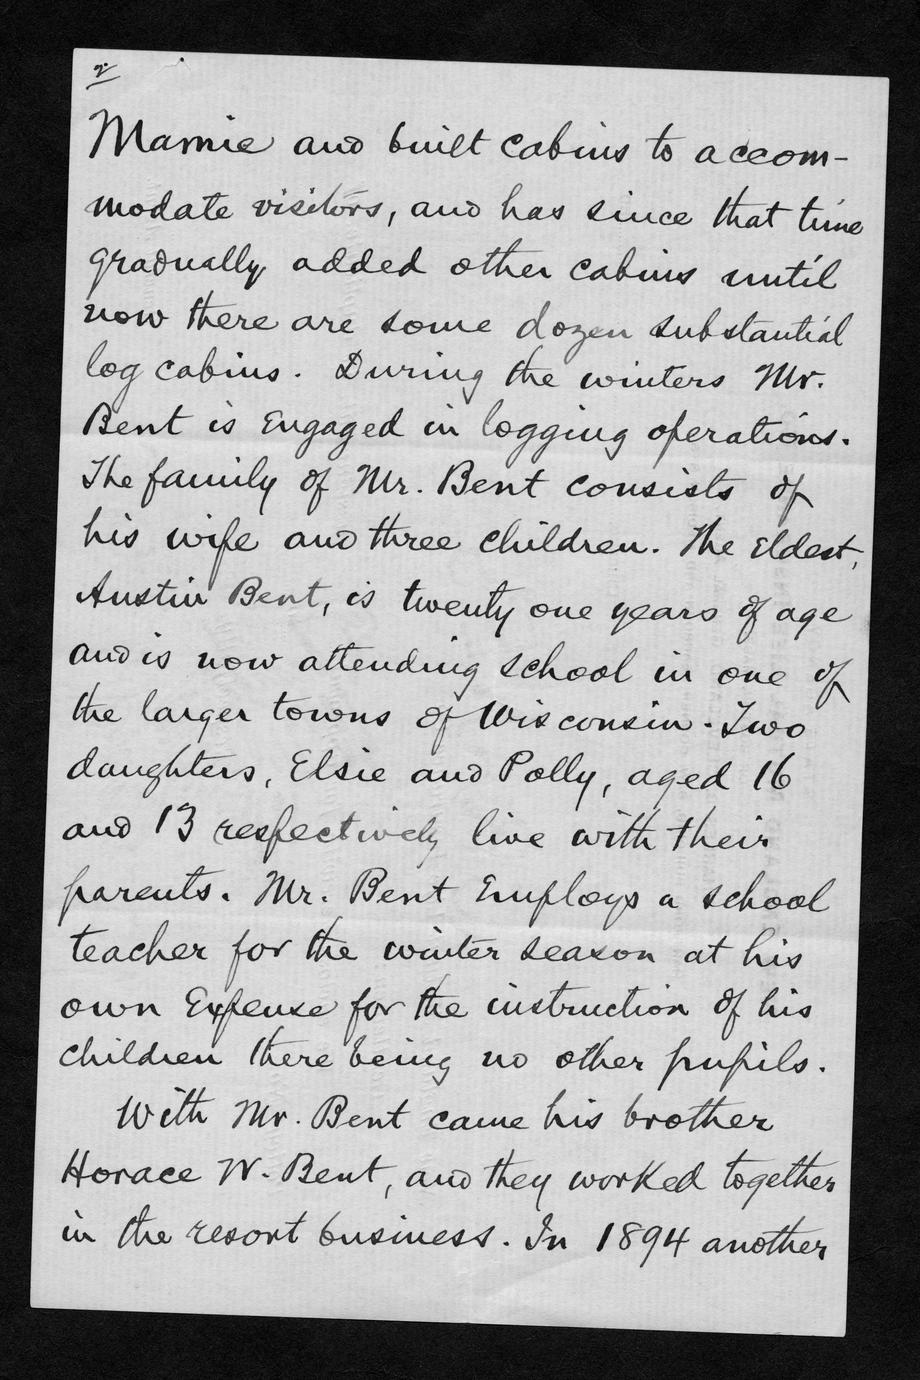 2
Mamie and built cabins to accom-
modate visitors, and has since that time
gradually added other cabins until
now there are some dozen substantial
log cabins. During the winters Mr.
Bent is Engaged in logging operations.
The family of Mr. Bent consists of
his wife and three children. The Eldest,
Austin Bent, is twenty one years of age
and is now attending school in one of
the larger towns of Wisconsin. Two
daughters, Elsie and Polly, aged 16
and 13 respectively live with their
parents. Mr. Bent Employs a school
teacher for the winter season at his
own Expense for the instruction of his
children there being no other pupils.
With Mr. Bent came his brother
Horace W. Bent, and they worked together
in the resort business. In 1894 another